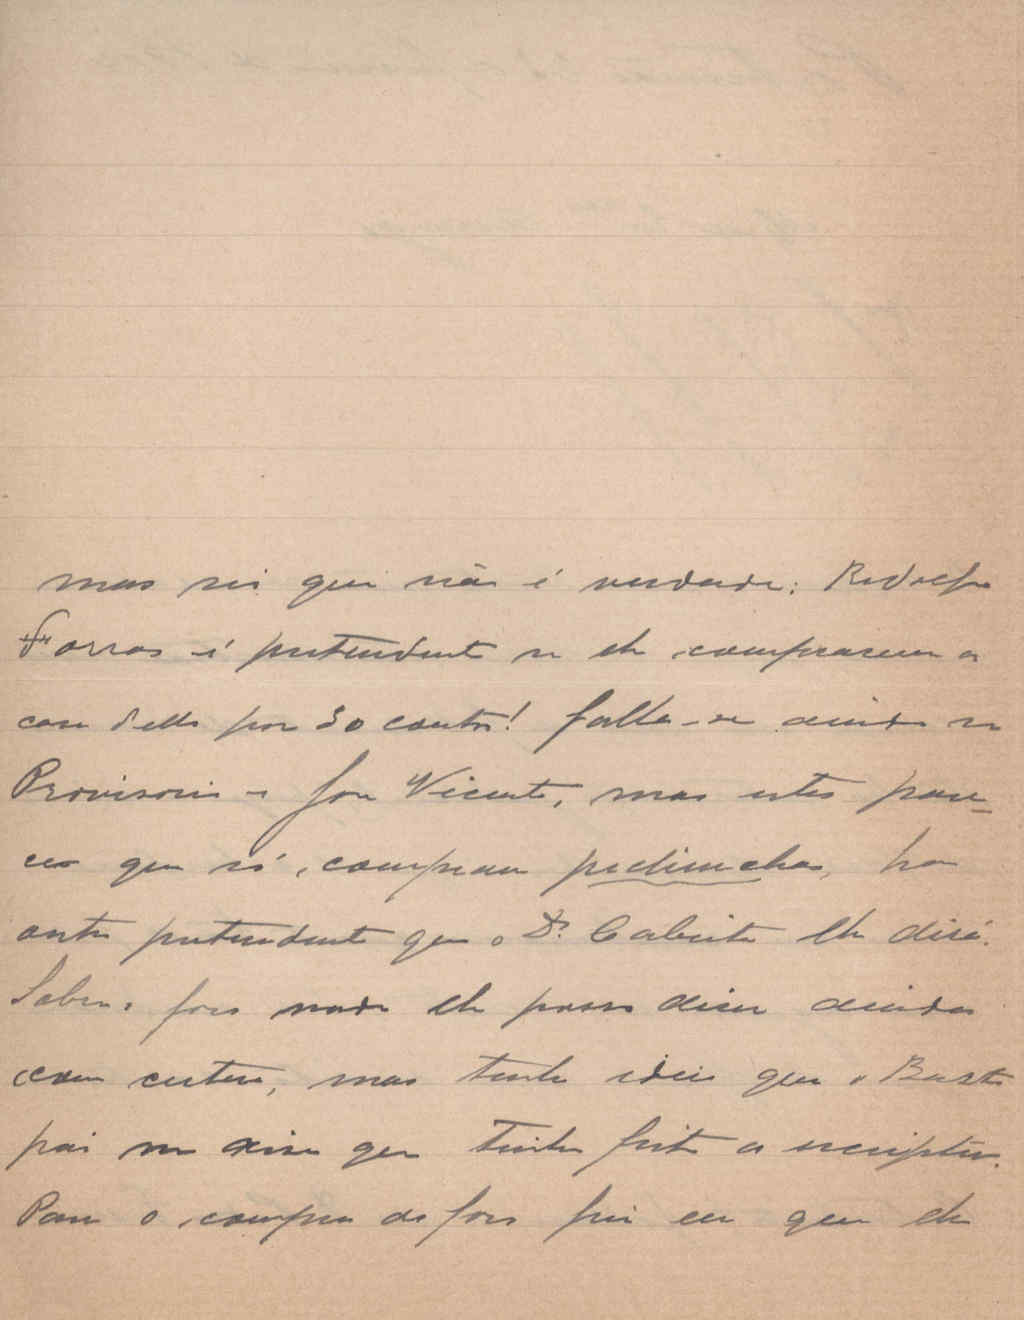 mas sei que não é verdade: Rodolfo
Forras é pretendente se lhe comprarem a
casa d'elle por 30 contos! falla-se ainda no
Provisorio e Vicente, mas estes pare-
ceo que só compram pechinchas, ha
outro pretendente que o Dr. lhe dirá.
foro nada lhe posso dizer ainda
com certeza, mas tenho ideia que o Basto
pai me disse que tinha feito a escriptura.
Para a compra do foro fui eu que lhe